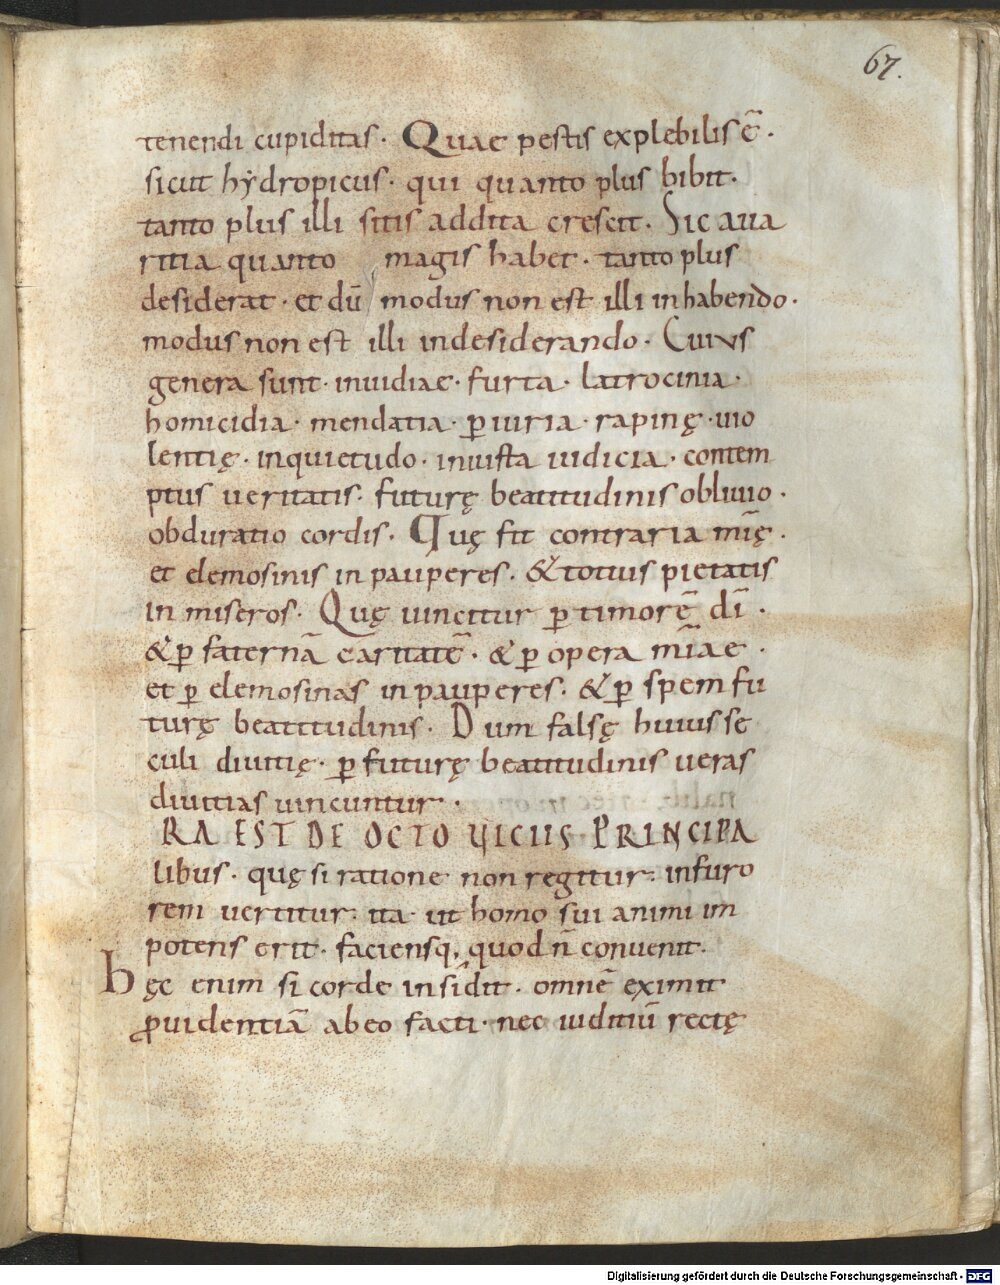 67.
tenendi cupiditas. Quae pestis explebilis ē.
sicut hydropicus. qui quanto plus bibit.
tanto plus illi sitis addita crescit. Sic aua
ritia quanto magis habet. tanto plus
desiderat. et dū modus non est illi inhabendo.
modus non est illi indesiderando. Cuius
genera sunt. inuidiae. furta. latrocinia.
homicidia. mendatia. ꝑiuria. rapinę. uio
lentię. inquietudo. iniusta iudicia. contem
ptus ueritatis. futurę beatitudinis obliuio.
obduratio cordis. Quę fit contraria mīę.
et elemosinis in pauperes. & totius pietatis
in miseros. Quę uincitur ꝑ timorē dī.
& ꝑ faternā caritatē. & ꝑ opera mīae.
et ꝑ elemosinas in pauperes. & ꝑ spem fu
turę beatitudinis. Dum falsę huius sę
culi diuitię. ꝑ futurę beatitudinis ueras
diuitias uincuntur.
RA EST DE OCTO UICIIS PRINCIPA
libus. quę si ratione non regitur. infuro
rem uertitur. ita ut homo sui animi im
potens erit. faciensq, quod n̄ conuenit.
hęc enim si corde insidit. omnē eximit
ꝓuidentiā abeo facti. nec iuditiū rectę
Digitalisierung gefördert durch die Deutsche Forschungsgemeinschaft - DFG